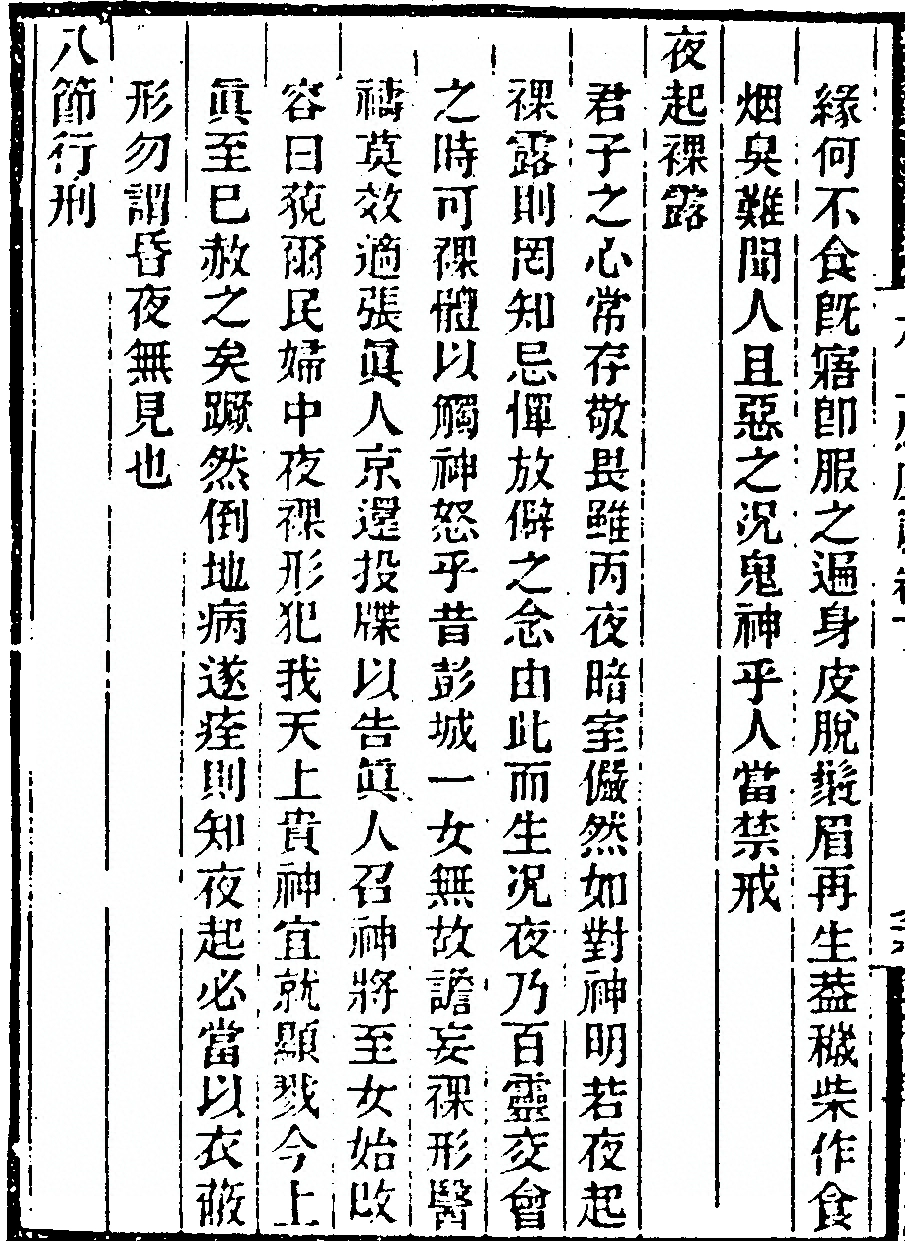 緣何不食旣寤卽服之遍身皮脫鬚眉再生葢穢柴作食
烟臭難聞人且惡之况鬼神乎人當禁戒
夜起裸露
君子之心常存敬畏雖丙夜暗室儼然如對神明若夜起
裸露則罔知忌憚放僻之念由此而生况夜乃百靈交會
之時可裸體以觸神怒乎昔彭城一女無故譫妄裸形醫
禱莫效適張眞人京還投牒以告眞人召神將至女始改
容曰藐爾民婦中夜裸形犯我天上貴神宜就顯戮今上
眞至巳赦之矣蹶然倒地病遂痊則知夜起必當以衣蔽
形勿謂昏夜無見也
八節行刑